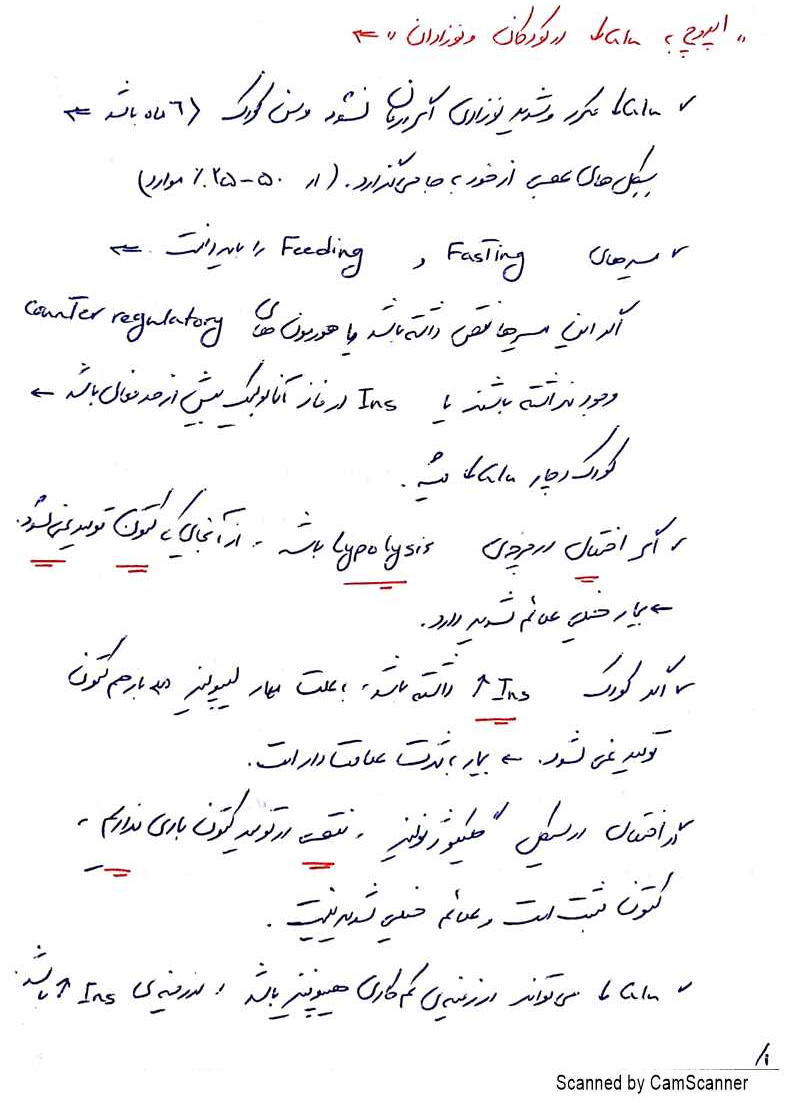 "اپروچ به ↓Glu در کودکان و نوزادان" ⇐
✓ ↓Glu مکرر و شدید نوزادی اگر درمان نشود و سن کودک < ۶ ماه باشد ⇐
سکل های عصبی از خود به جا می گذارد. (از ۵۰-۲۵٪ موارد)
✓ مسیرهای Fasting و Feeding را باید دانست. ⇐
اگر این مسیرها نقص داشته باشد یا هورمون های counter regulatory
وجود نداشته باشند یا Ins در فاز آنابولیک بیش از حد فعال باشد ←
کودک دچار ↓Glu میشه.
✓ اگر اختلال در مرحله ی lypolysis باشد، از آنجایی که کتون تولید نمی شود.
← بیمار خیلی علائم شدید دارد.
✓ اگر کودک ↑Ins داشته باشد، به علت مهار لیپولیز باز هم کتون
تولید نمی شود. ← بیمار به شدت علامت دار است.
✓ در اختلال در سیکل گلیکوژنولیز، نقصی در تولید کتون بادی نداریم،
کتون مثبت است و علائم خیلی شدید نیست.
✓ ↓Glu می تواند در زمینه ی کم کاری هیپوفیز باشد، در زمینه ی ↑Ins باشد.
۱/
Scanned by CamScanner